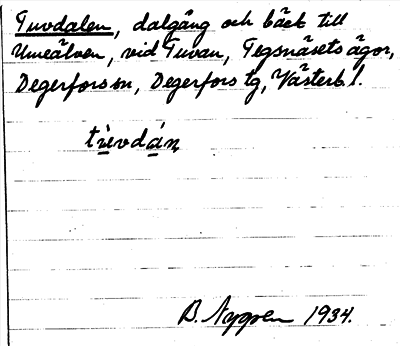 Tuvdalen, dalgång och bäck till
Umeälven, vid Tuvan, Tegsnäsets ägor,
Degerfors sn, Degerfors tg, Västerb. l.
tùvdán
B. Nygren 1934.